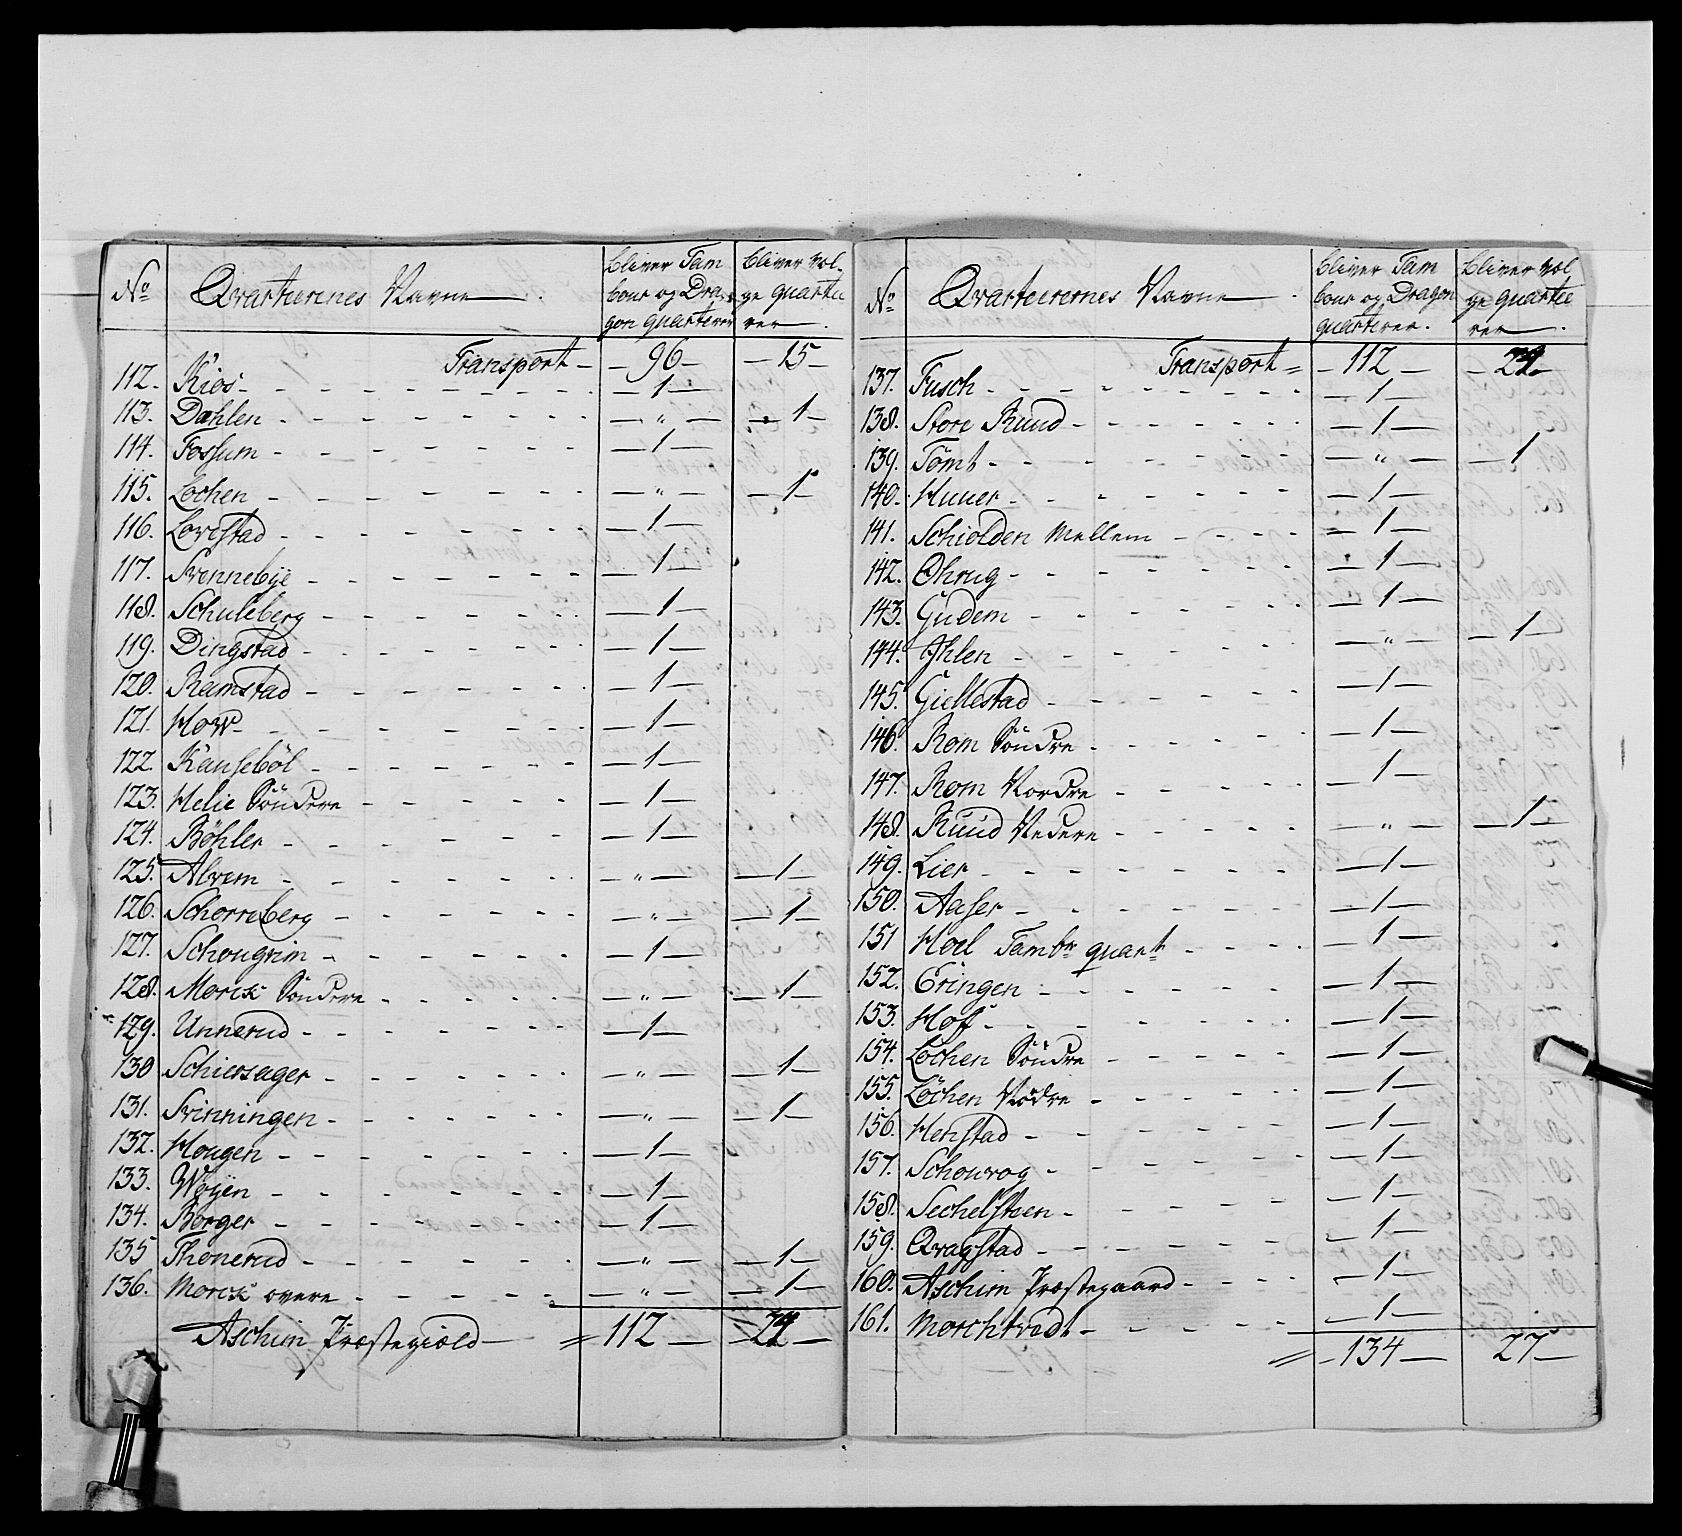 No Qvarteerenes Navne bliver Tam bliver vol-
bour og Dra- ge quartee
gon quarterer rer
Transport - 96 - 15 -
112. Kios - 1 -
113. Dæhlen - " - 1 -
114. Fossum - 1 -
115. Lochen - " - 1 -
116. Lovestad - 1 -
117. Svennebÿe - 1 -
118. Schuleberg - 1 -
119. Dingstad - 1 -
120. Ramstad - 1 -
121. How - 1 -
122. Kansebøl - 1 -
123. Helie Söndere - 1 -
124. Böhler - 1 -
125. Alvem - " - 1 -
126. Schorreberg - " - 1 -
127. Schougrim - 1 -
128. Morck Söndere - " - 1 -
129. Unnerud - 1 -
130 Schiersager - " - 1 -
131. Svinningen - " - 1 -
132. Hougen - 1 -
133. Wøyen - 1 -
134. Borger - 1 -
135 Thonerud - " - 1 -
136. Morck overe - " - 1 -
Aschim Præstegiold = 112 -
No Qvarteerernes Navne bliver Tam bliver vol
bour og Dragon ge quartee
quarterer. rer
Transport = - 112 -
137. Fusch - 1 -
138. Store Ruud - 1 -
139. Tömt - " - 1
140. Huuer - 1 -
141. Schiolden Mellem - 1 -
142. Ohrug - 1 -
143. Gudem - 1 -
144. Ihlen - " - 1 -
145. Giellestad - 1 -
146. Rom Söndre - 1 -
147. Rom Nordre - 1 -
148. Ruud Nedere - " - 1 -
149. Lier - 1 -
150. Aaser - 1 -
151 Hoel Tambr quart - 1 -
152. Eringen - 1 -
153. Hoff - 1 -
154. Lochen Söndre - 1 -
155. Löchen Nödre - 1 -
156. Henstad - 1 -
157. Schourog - 1 -
158. Sechelsteen - 1 -
159. Qvagstad - 1 -
160. Aschim Præstegaard - 1 -
161. Morchtvedt - 1 -
= - 134 - 27 -